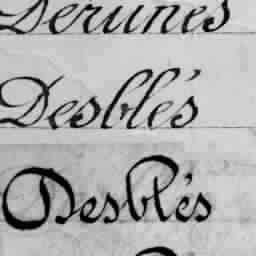 Derunes
Desblés
Desblés